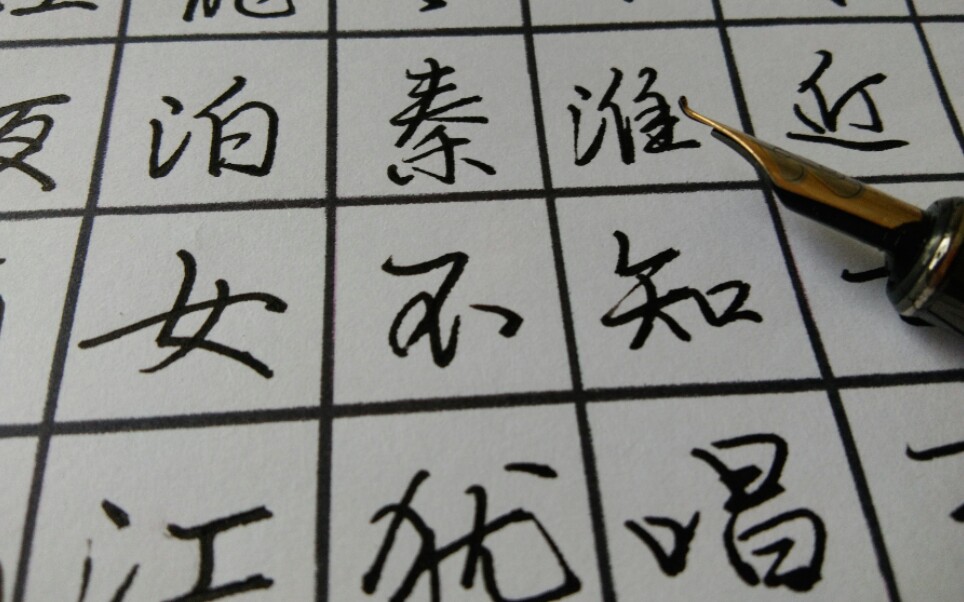 泊秦淮近
女不知
江犹唱